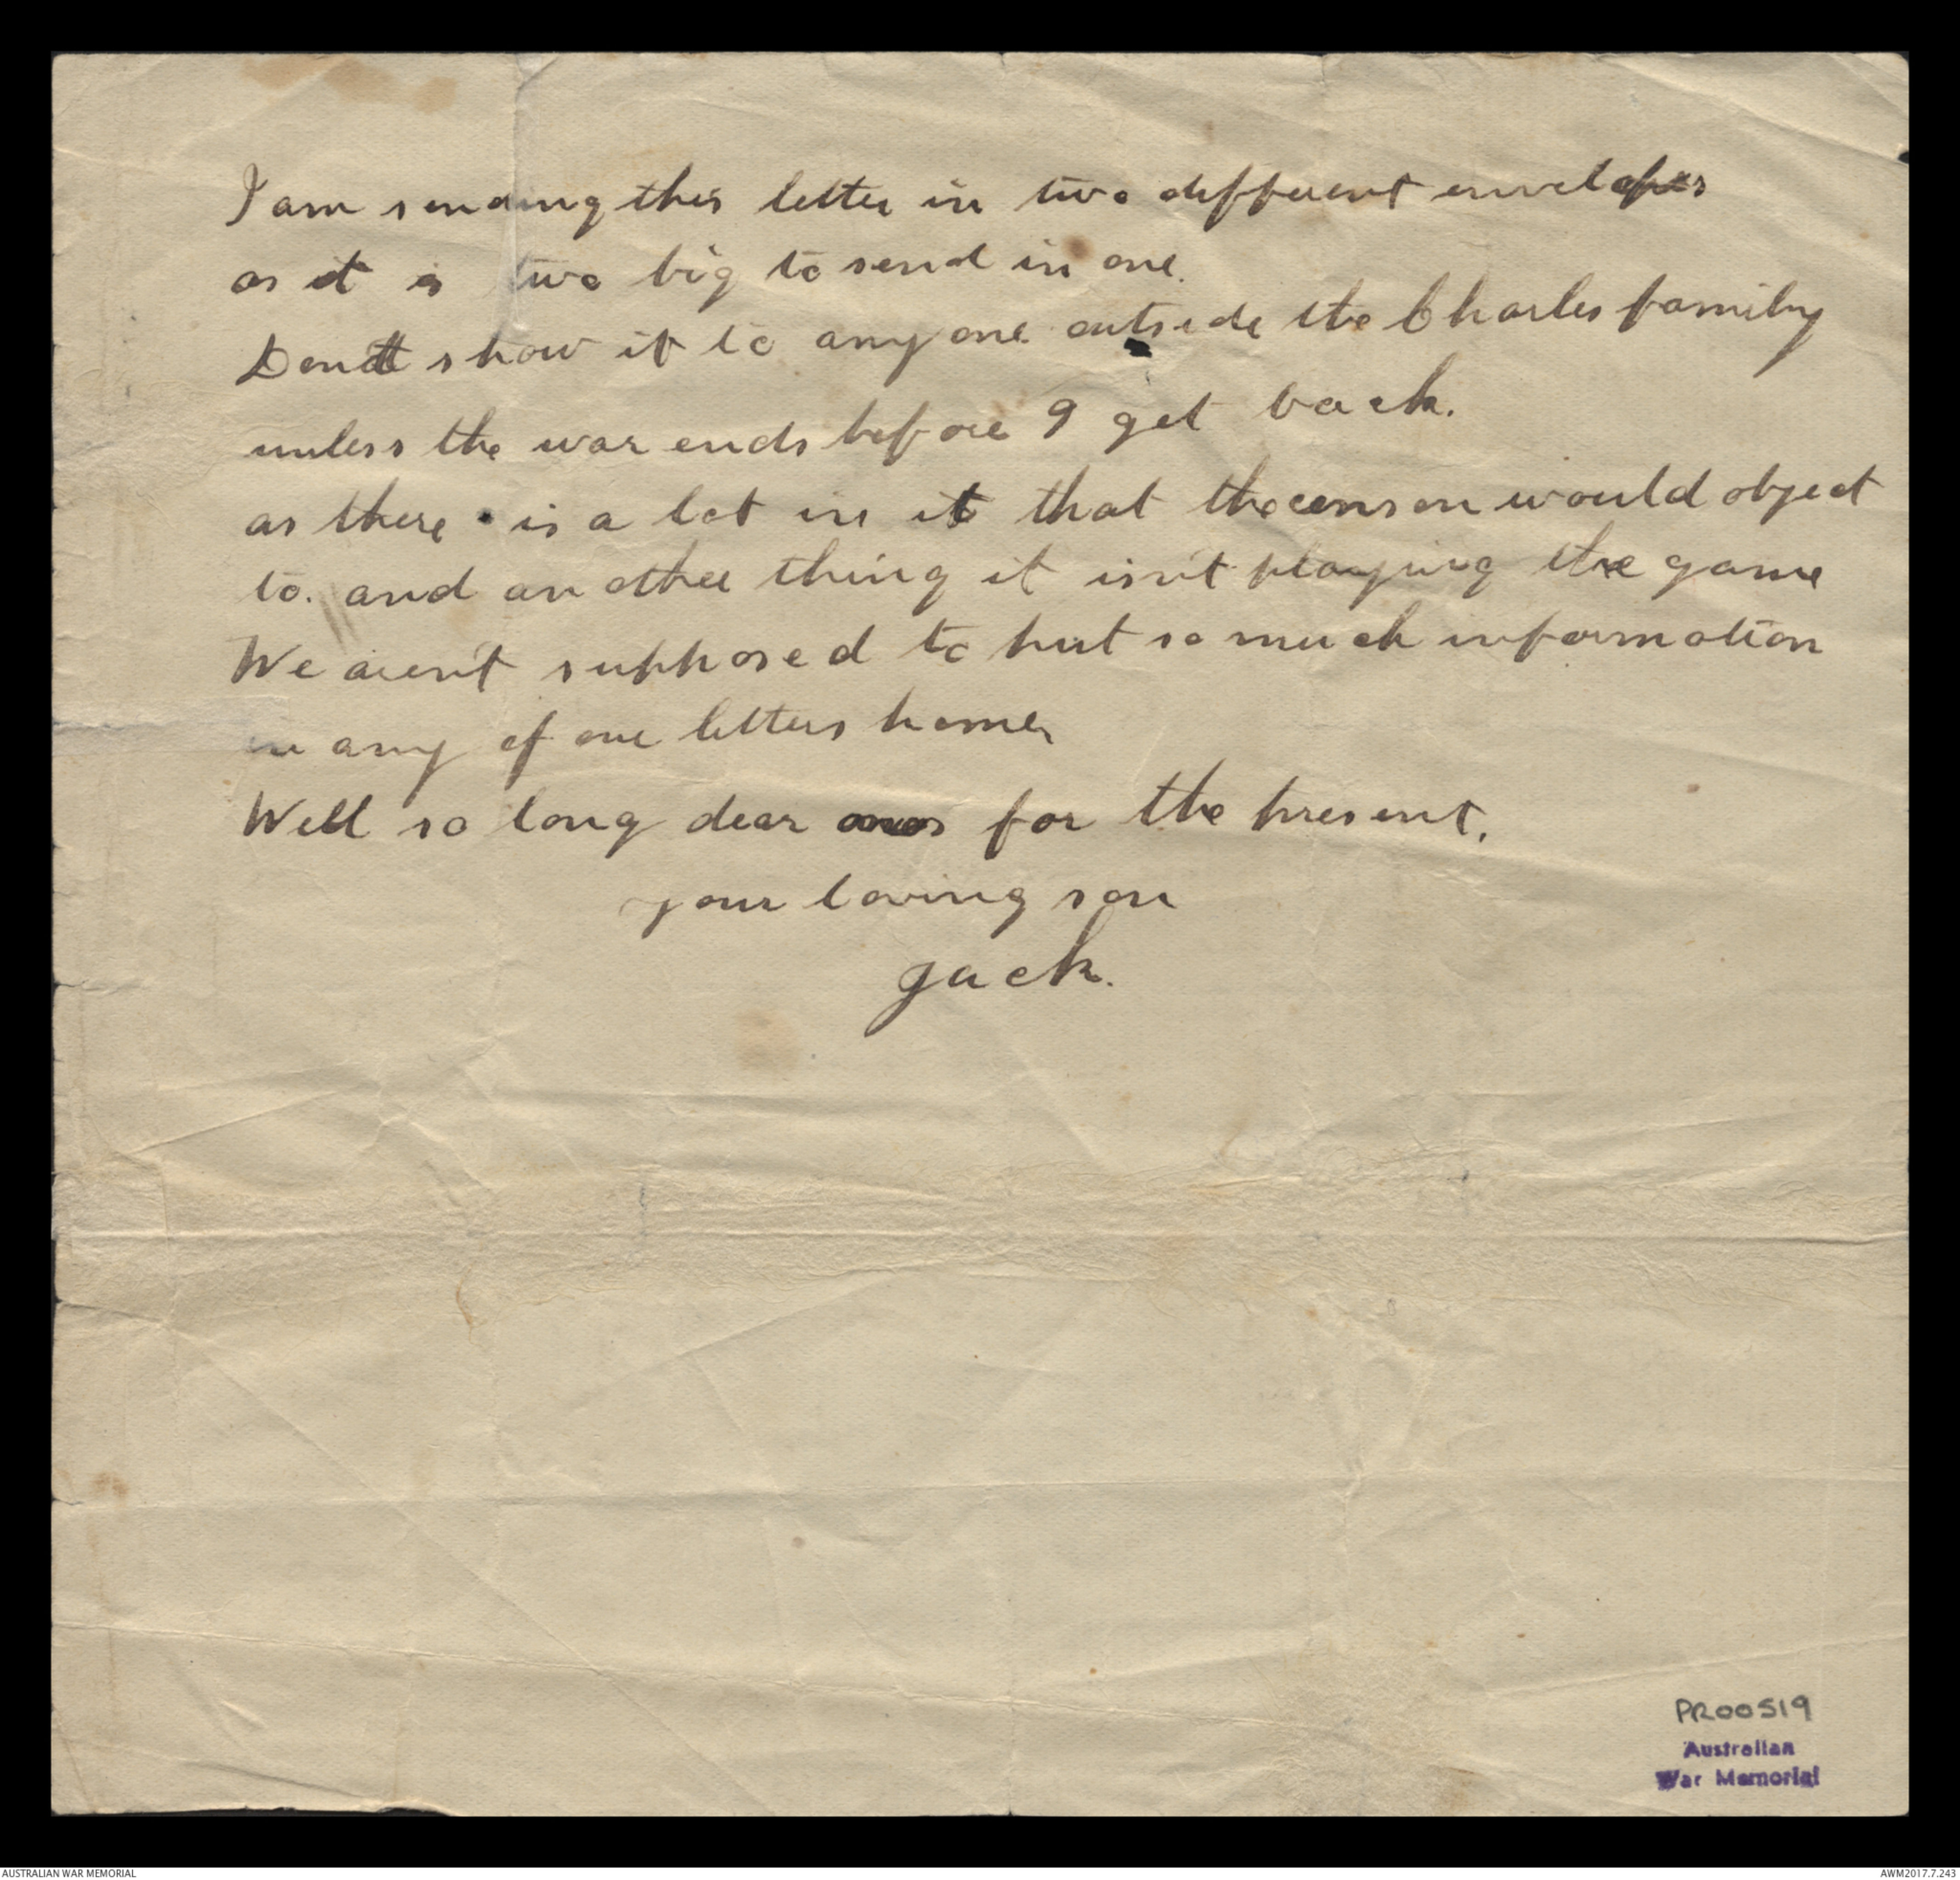 I am sending this letter in two different envelopes
as it is two big to send in one.
Dont show it to anyone outside the Charles family
unless the war ends before I get back.
as there is a lot in it that the censor would object
to. and another thing it isn't playing the game
We aren't supposed to put so much information
in any of our letters home,
Well so long dear ones for the present.
your loving son
Jack.
PR00519
Australian
War Memorial
AUSTRALIAN WAR MEMORIAL
AWM2017.7.243